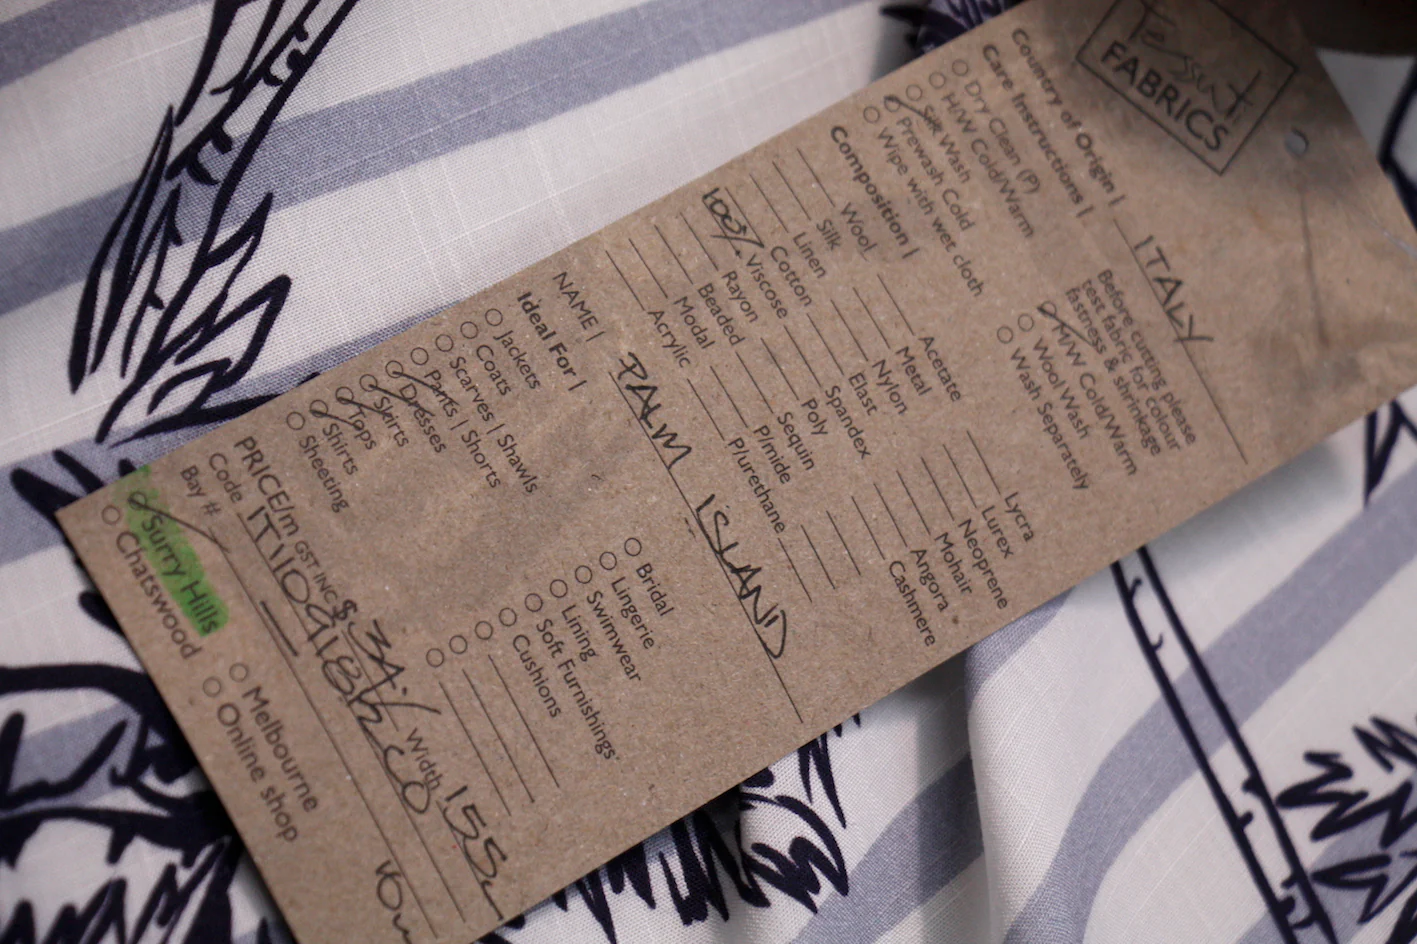 Tessuti
FABRICS
Country of Origin | ITALY
Care Instructions |
Dry Clean (P)
H/W Cold/Warm
Silk Wash
Prewash Cold
Wipe with wet cloth
Before cutting please
test fabric for colour
fastness & shrinkage
M/W Cold/Warm
Wool Wash
Wash Separately
Composition |
Wool
Silk
Linen
Cotton
100% Viscose
Rayon
Beaded
Modal
Acrylic
Acetate
Metal
Nylon
Elast
Spandex
Poly
Sequin
P/mide
P/urethane
Lycra
Lurex
Neoprene
Mohair
Angora
Cashmere
NAME | PALM ISLAND
Ideal For |
Jackets
Coats
Scarves | Shawls
Pants | Shorts
Dresses
Skirts
Tops
Shirts
Sheeting
Bridal
Lingerie
Swimwear
Lining
Soft Furnishings
Cushions
PRICE/m GST INC $ Width 155
Code
Bay #
Surry Hills
Chatswood
Melbourne
Online shop